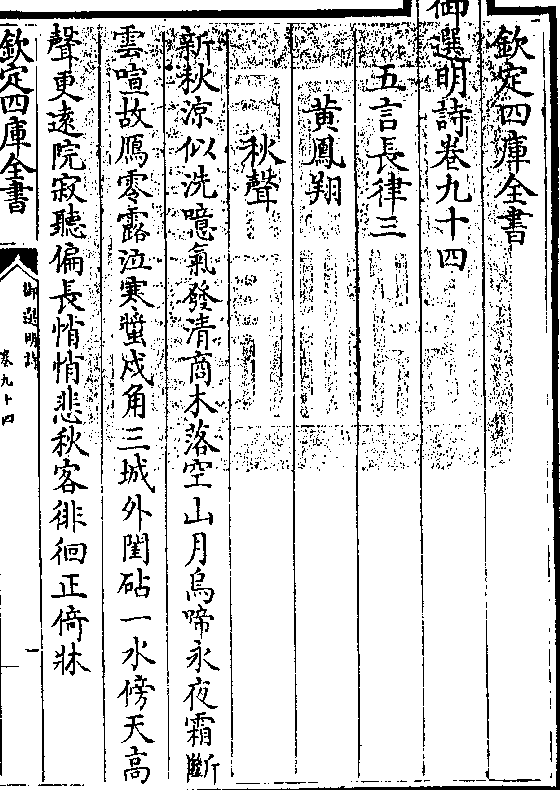 欽定四庫全書
御選明詩卷九十四
五言長律三
黄鳳翔
秋聲
新秋凉似洗噫氣發清商木落空山月烏啼永夜霜斷
雲喧故鴈零露泣寒螿戍角三城外閨砧一水傍天高
聲更逺院寂聽偏長悄悄悲秋客徘徊正倚牀
欽定四庫全書
御選明詩
卷九十四
一